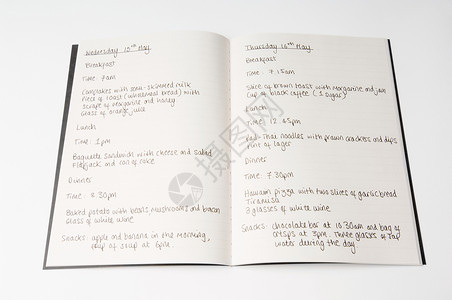 Wednesday 15th May
Breakfast
Time: 7am
Cornflakes with semi-skimmed milk
Piece of toast (wholemeal bread) with
scrape of margarine and honey
Glass of orange juice
Lunch
Time: 1pm
Baguette sandwich with cheese and salad
Flapjack and can of coke
Dinner
Time: 8.30pm
Baked potato with beans mushrooms and bacon
Glass of white wine.
Snacks: apple and banana in the morning,
cup of soup at 6pm.
Thursday 16th May
Breakfast
Time: 7.15am
Slice of brown toast with margarine and jam
Cup of black coffee (1 sugar)
Lunch
Time: 12.45pm
Thai noodles with prawn crackers and dips
Pint of lager
Dinner
Time: 7.30pm
Hawaiian pizza with two slices of garlic bread
Tiramisu
3 glasses of white wine
Snacks: chocolate bar at 10.30am and bag of
crisps at 3pm. Three glasses of tap
water during the day